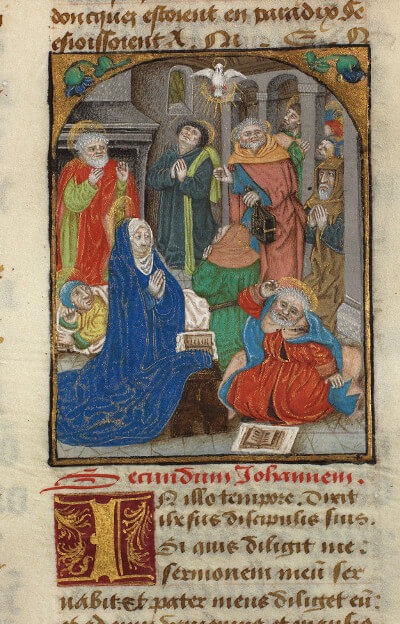 doncques estoient en paradix Se
esioissoient
Secundum Johannem.
IN illo tempore. Dixit
ihesus discipulis suis.
Si quis diligit me
sermonem meū ser
uabit. Et pater meus diliget eū
et ad eum